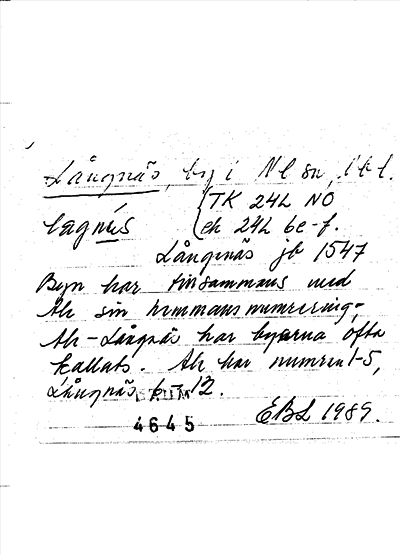 Långnäs, by i Nl sn,
lagnäs
TK 24L NO,
ek 24L 6e-f.
Långnäs jb 1547
Byn har tillsammans med
Ale sin hemmansnumrering,
Ale-Långnäs har byarna ofta
kallats. Ale har numren 1-5,
Långnäs 6-12.
4645
EBL 1989.